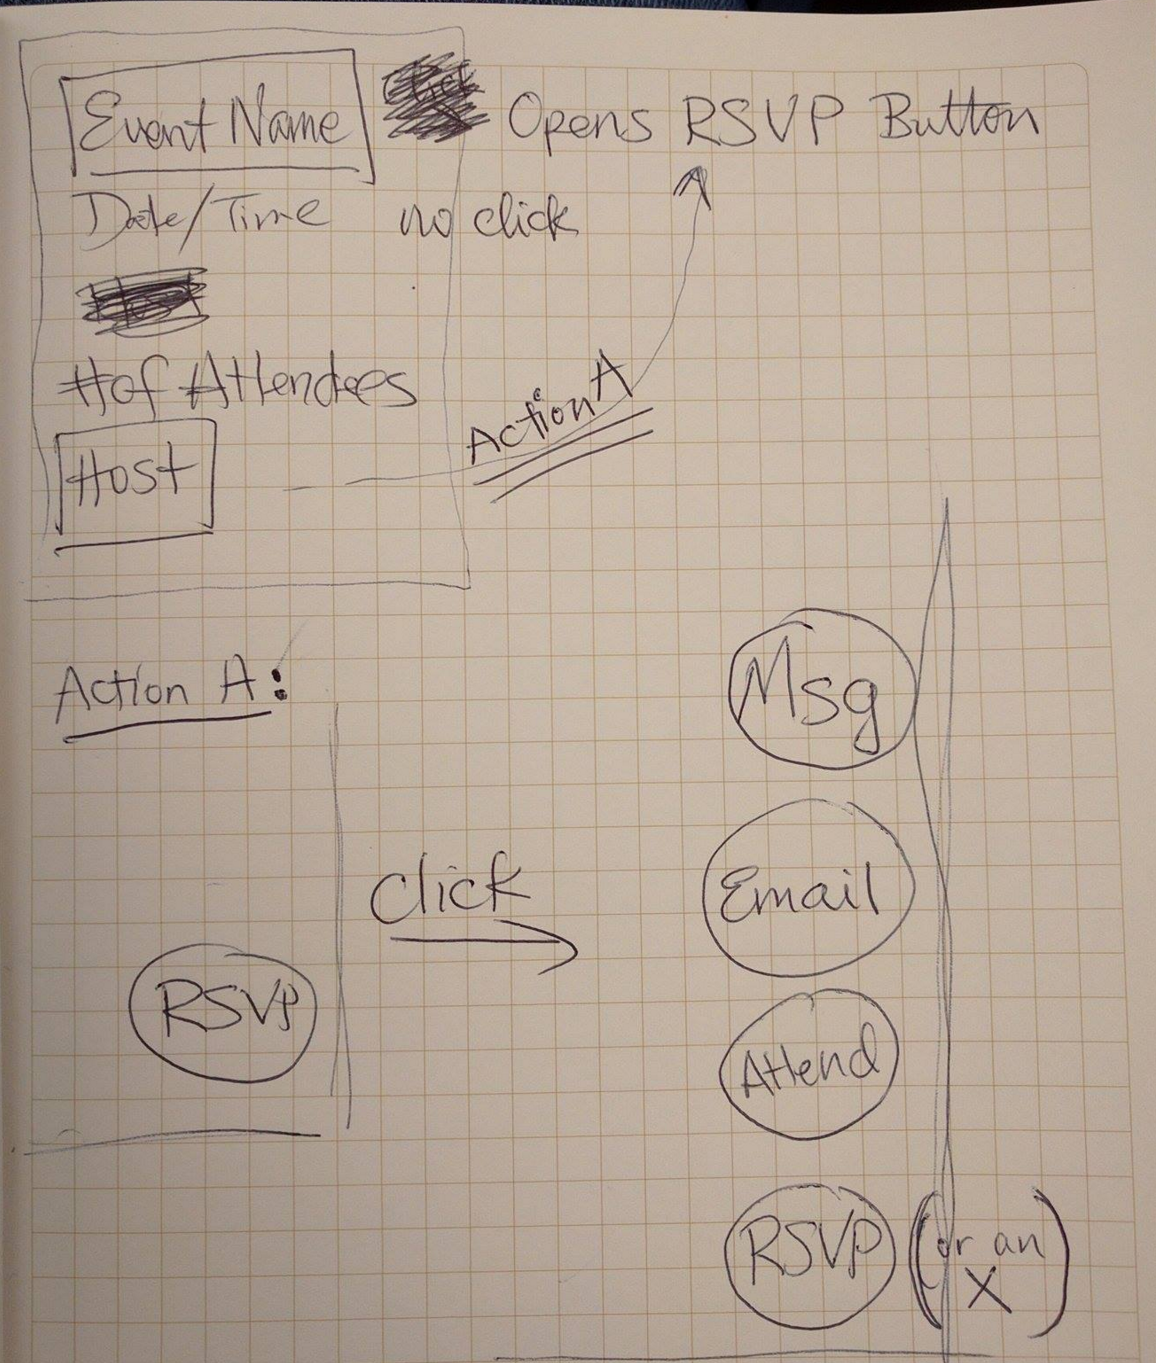 Event Name Opens RSVP Button
Date/Time no click
# of Attendees
Host
Action A
Action A:
Msg
Click
Email
RSVP
Attend
RSVP (or an X)